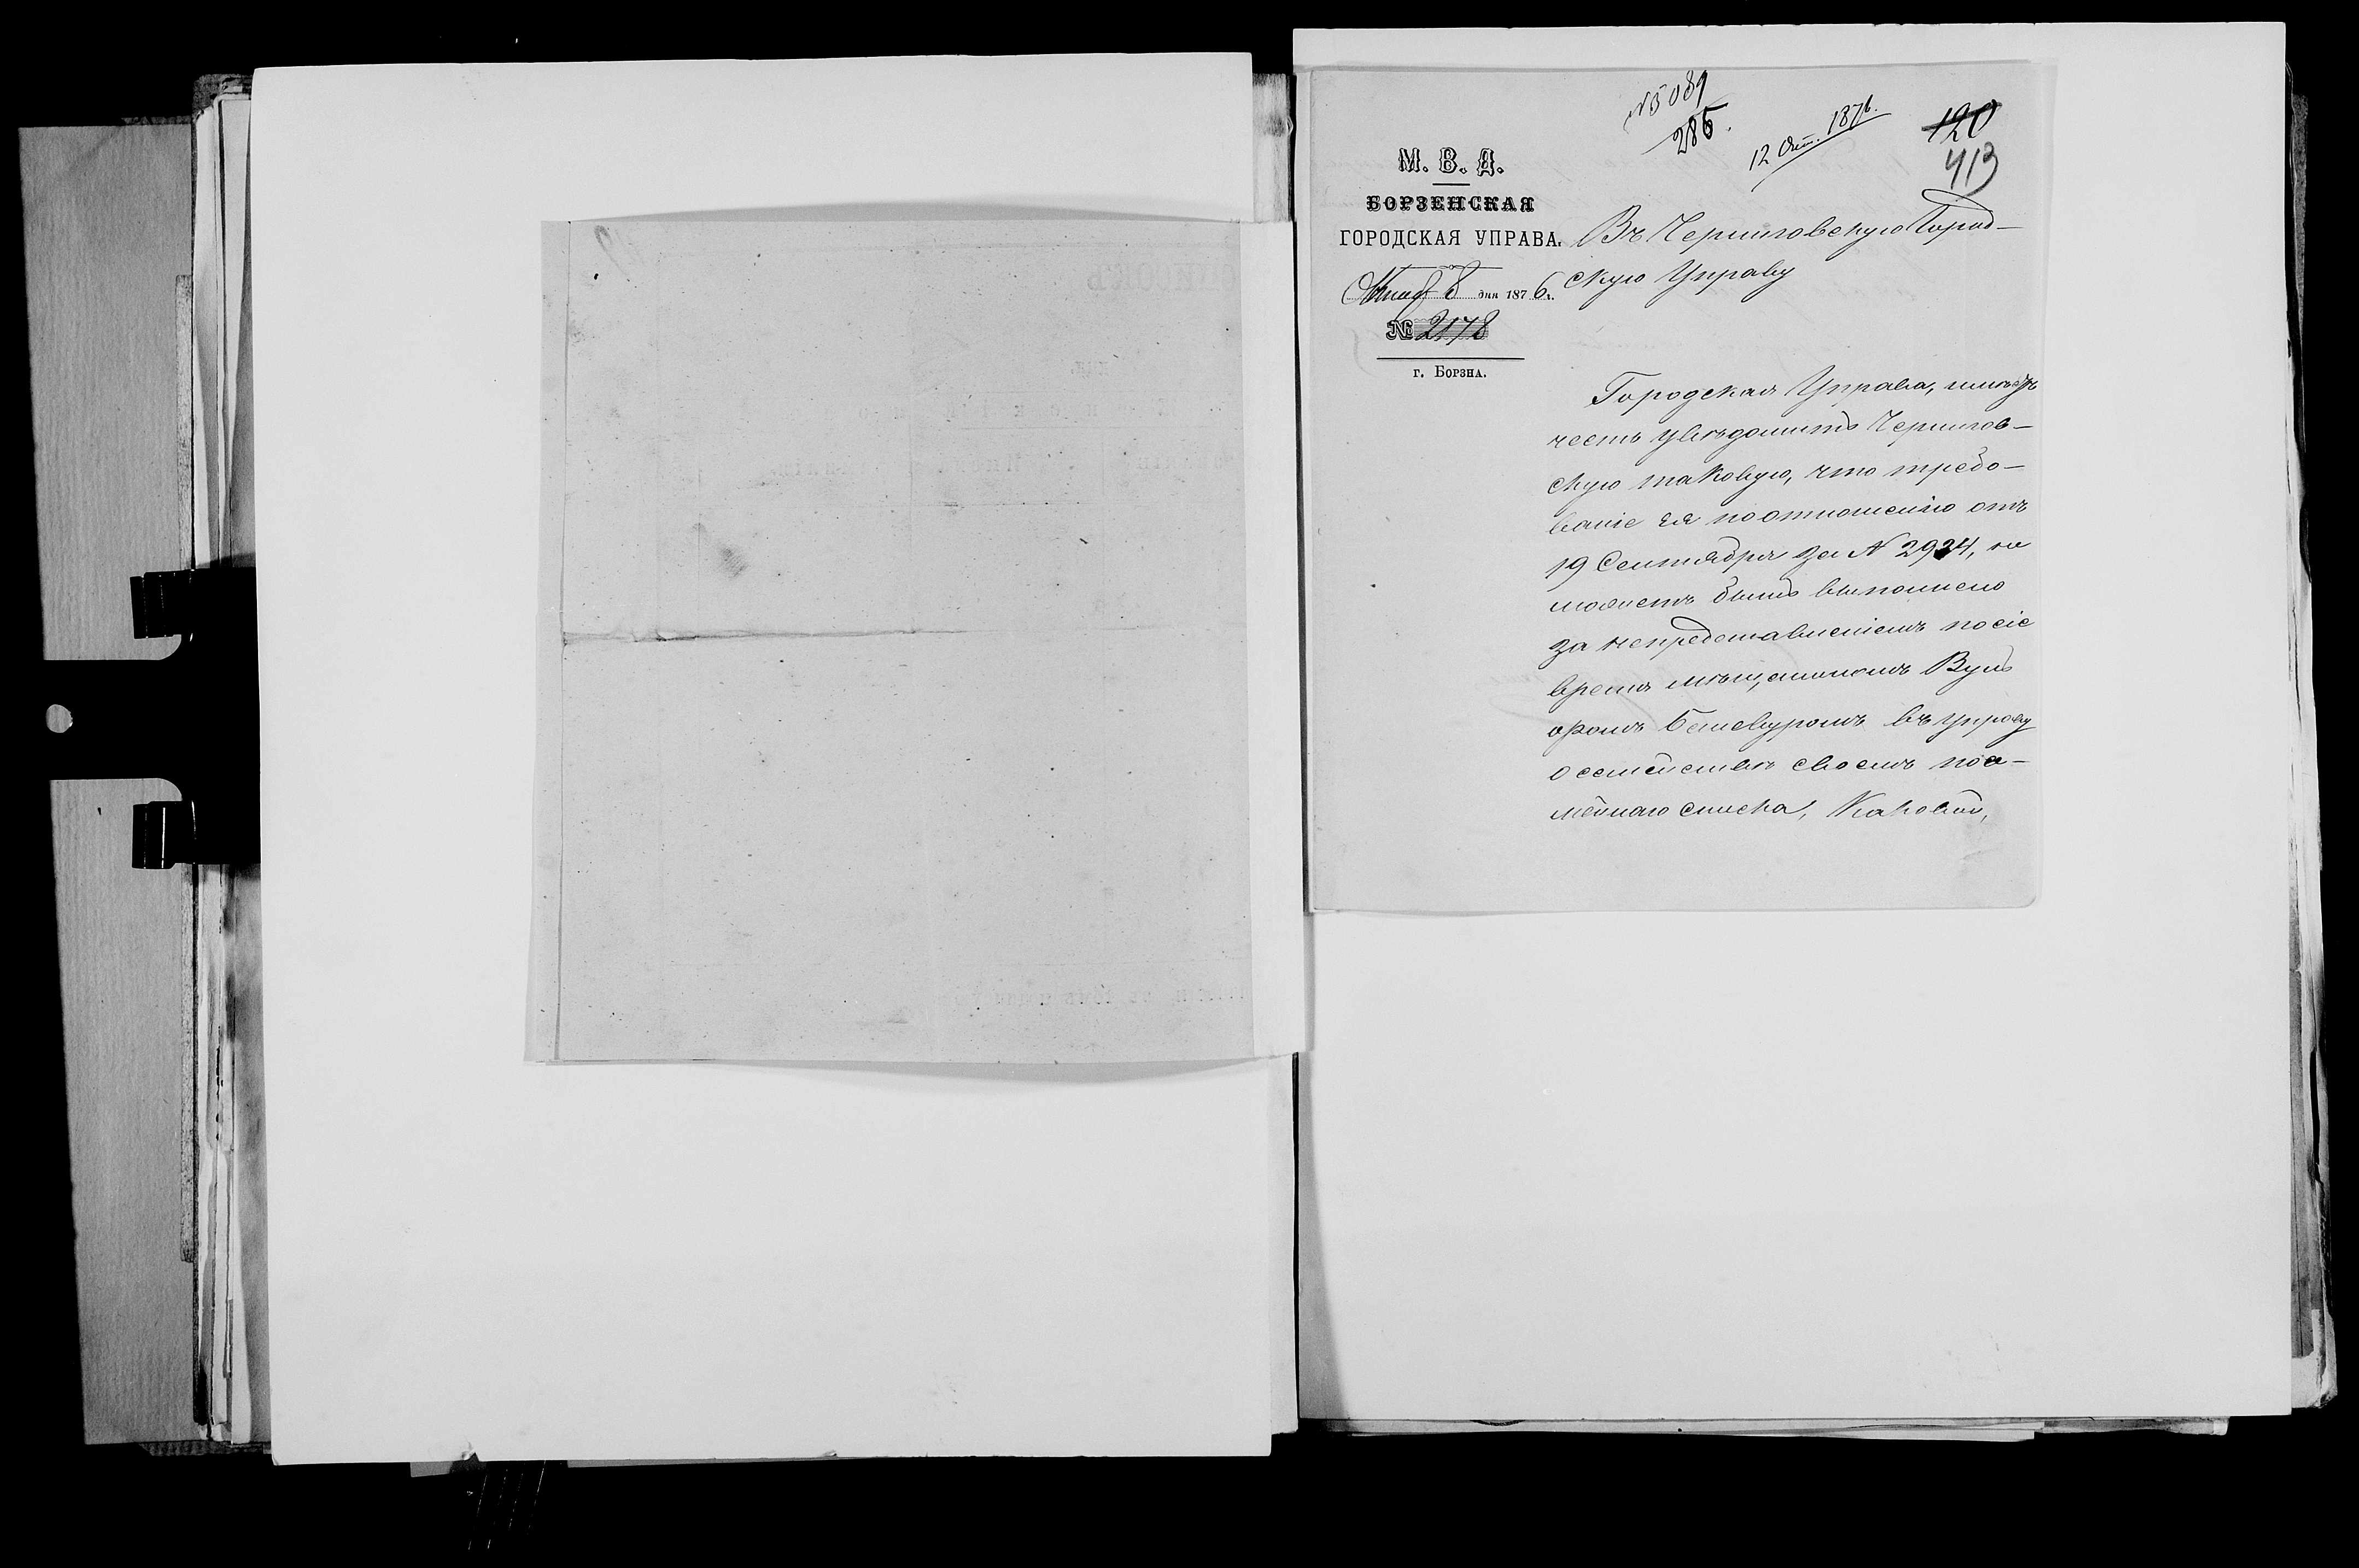 № 5089
286.
12 Окт. 1876.
120
413
М. В. Д.
БОРЗЕНСКАЯ
ГОРОДСКАЯ УПРАВА.
8 дня 1876 г.
№ 2178
г. Борзна.
Въ Черниговскую Город-
скую Управу
Городская Управа, имѣетъ
честь увѣдомить Чернигов-
скую таковую, что требо-
ваніе ея по отношенію отъ
19 Сентября за N 2934, не
можетъ быть выполнено
за непредставленіемъ по сіе
время мѣщаниномъ Вуль
фомъ въ Управу
о семействѣ своемъ посе-
мейнаго списка, каковой,